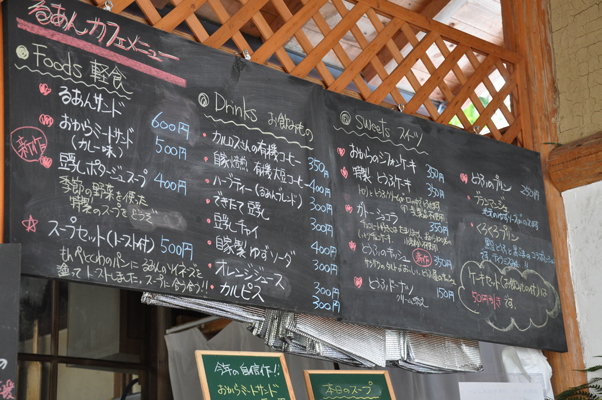 るあん カフェメニュー
Foods 軽食
るあんサンド 600円
おからミートサンド
(カレー味) 500円
新作
豆乳ポタージュスープ 400円
季節の野菜を使った
特製のスープをどうぞ
スープセット(トースト付) 500円
塗ってトーストしました。スープに合う合う!!
Drinks お飲みもの
カルロスさんの有機コーヒー 350円
自家焙煎 有機大豆コーヒー 400円
ハーブティー(るあんブレンド) 300円
できたて豆乳 300円
豆乳チャイ 400円
自家製ゆずソーダ 300円
オレンジジュース 300円
カルピス 300円
Sweets スイーツ
おからのシフォンケーキ 350円
特製 とうふケーキ 350円
ガトーショコラ 350円
新作
350円
とうふドーナツ 150円
おとうふのプリン 250円
くろくろプリン
ケーキセット(お飲みもの付)は
50円引き
です。
今年の自信作!!
おからミートサンド
本日のスープ